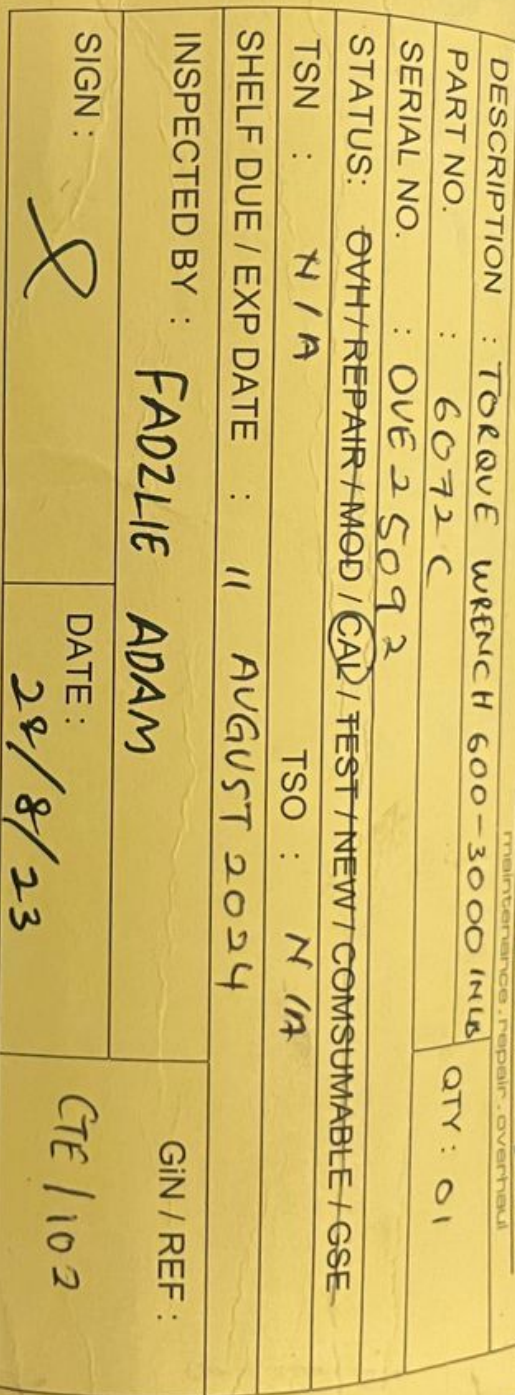 maintenance.repair.overhaul
DESCRIPTION : TORQUE WRENCH 600-3000 INLB
PART NO. : 6072C QTY : 01
SERIAL NO. : OVE25092
STATUS: OVH / REPAIR / MOD / CAL / TEST / NEW / COMSUMABLE / GSE
TSN : N/A TSO : N/A
SHELF DUE / EXP DATE : 11 AUGUST 2024
INSPECTED BY : FADZLIE ADAM GiN / REF :
SIGN : DATE : 28/8/23 CTE/102